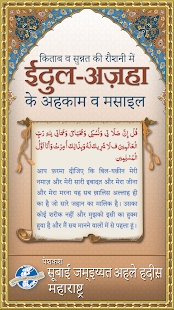 किताब व सुन्नत की रौशनी में
ईदुल-अज़हा
के अहकाम व मसाइल
قُلْ إِنَّ صَلَاتِي وَنُسُكِي وَمَحْيَايَ وَمَمَاتِي لِلَّهِ رَبِّ
الْعَالَمِينَ لَا شَرِيكَ لَهُ وَبِذَٰلِكَ أُمِرْتُ وَأَنَا أَوَّلُ
الْمُسْلِمِينَ
आप फ़रमा दीजिए कि बिल-यक़ीन मेरी
नमाज़ और मेरी सारी इबादत और मेरा जीना
और मेरा मरना यह सब ख़ालिस अल्लाह ही
का है जो सारे जहान का मालिक है। उसका
कोई शरीक नहीं और मुझको इसी का हुक्म
हुआ है और मैं सब मानने वालों में से पहला हूं।
सूबाई जमइय्यत अहले हदीस
महाराष्ट्र